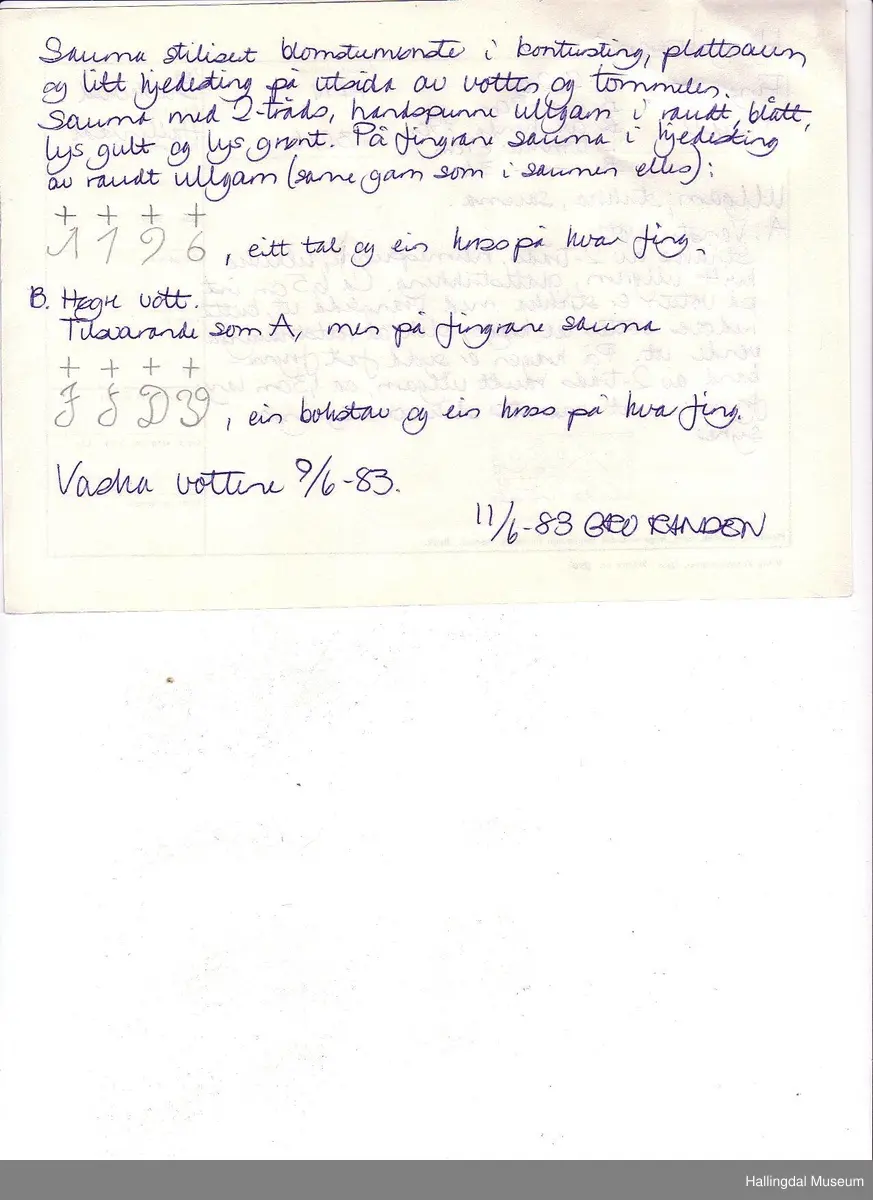 Sauma stilisert blomstermønster i kontursting, plattsaum
og litt kjedesting på utsida av votten og tommelen.
Sauma med 2-tråds, handspunne ullgarn i raudt, blått,
lys gult og lys grønt. På fingrane sauma i kjedesting
av raudt ullgarn (same garn som i saumen elles):
+ + + +
1 1 9 6 , eitt tal og ein kross på kvar fing.
B. Høgre vott.
Tilsvarande som A, men på fingrane sauma
+ + + +
J J D , ein bokstav og ein kross på kvar fing.
Vaska vottene 9/6-83.
11/6-83 GRO RANDEN
Hallingdal Museum